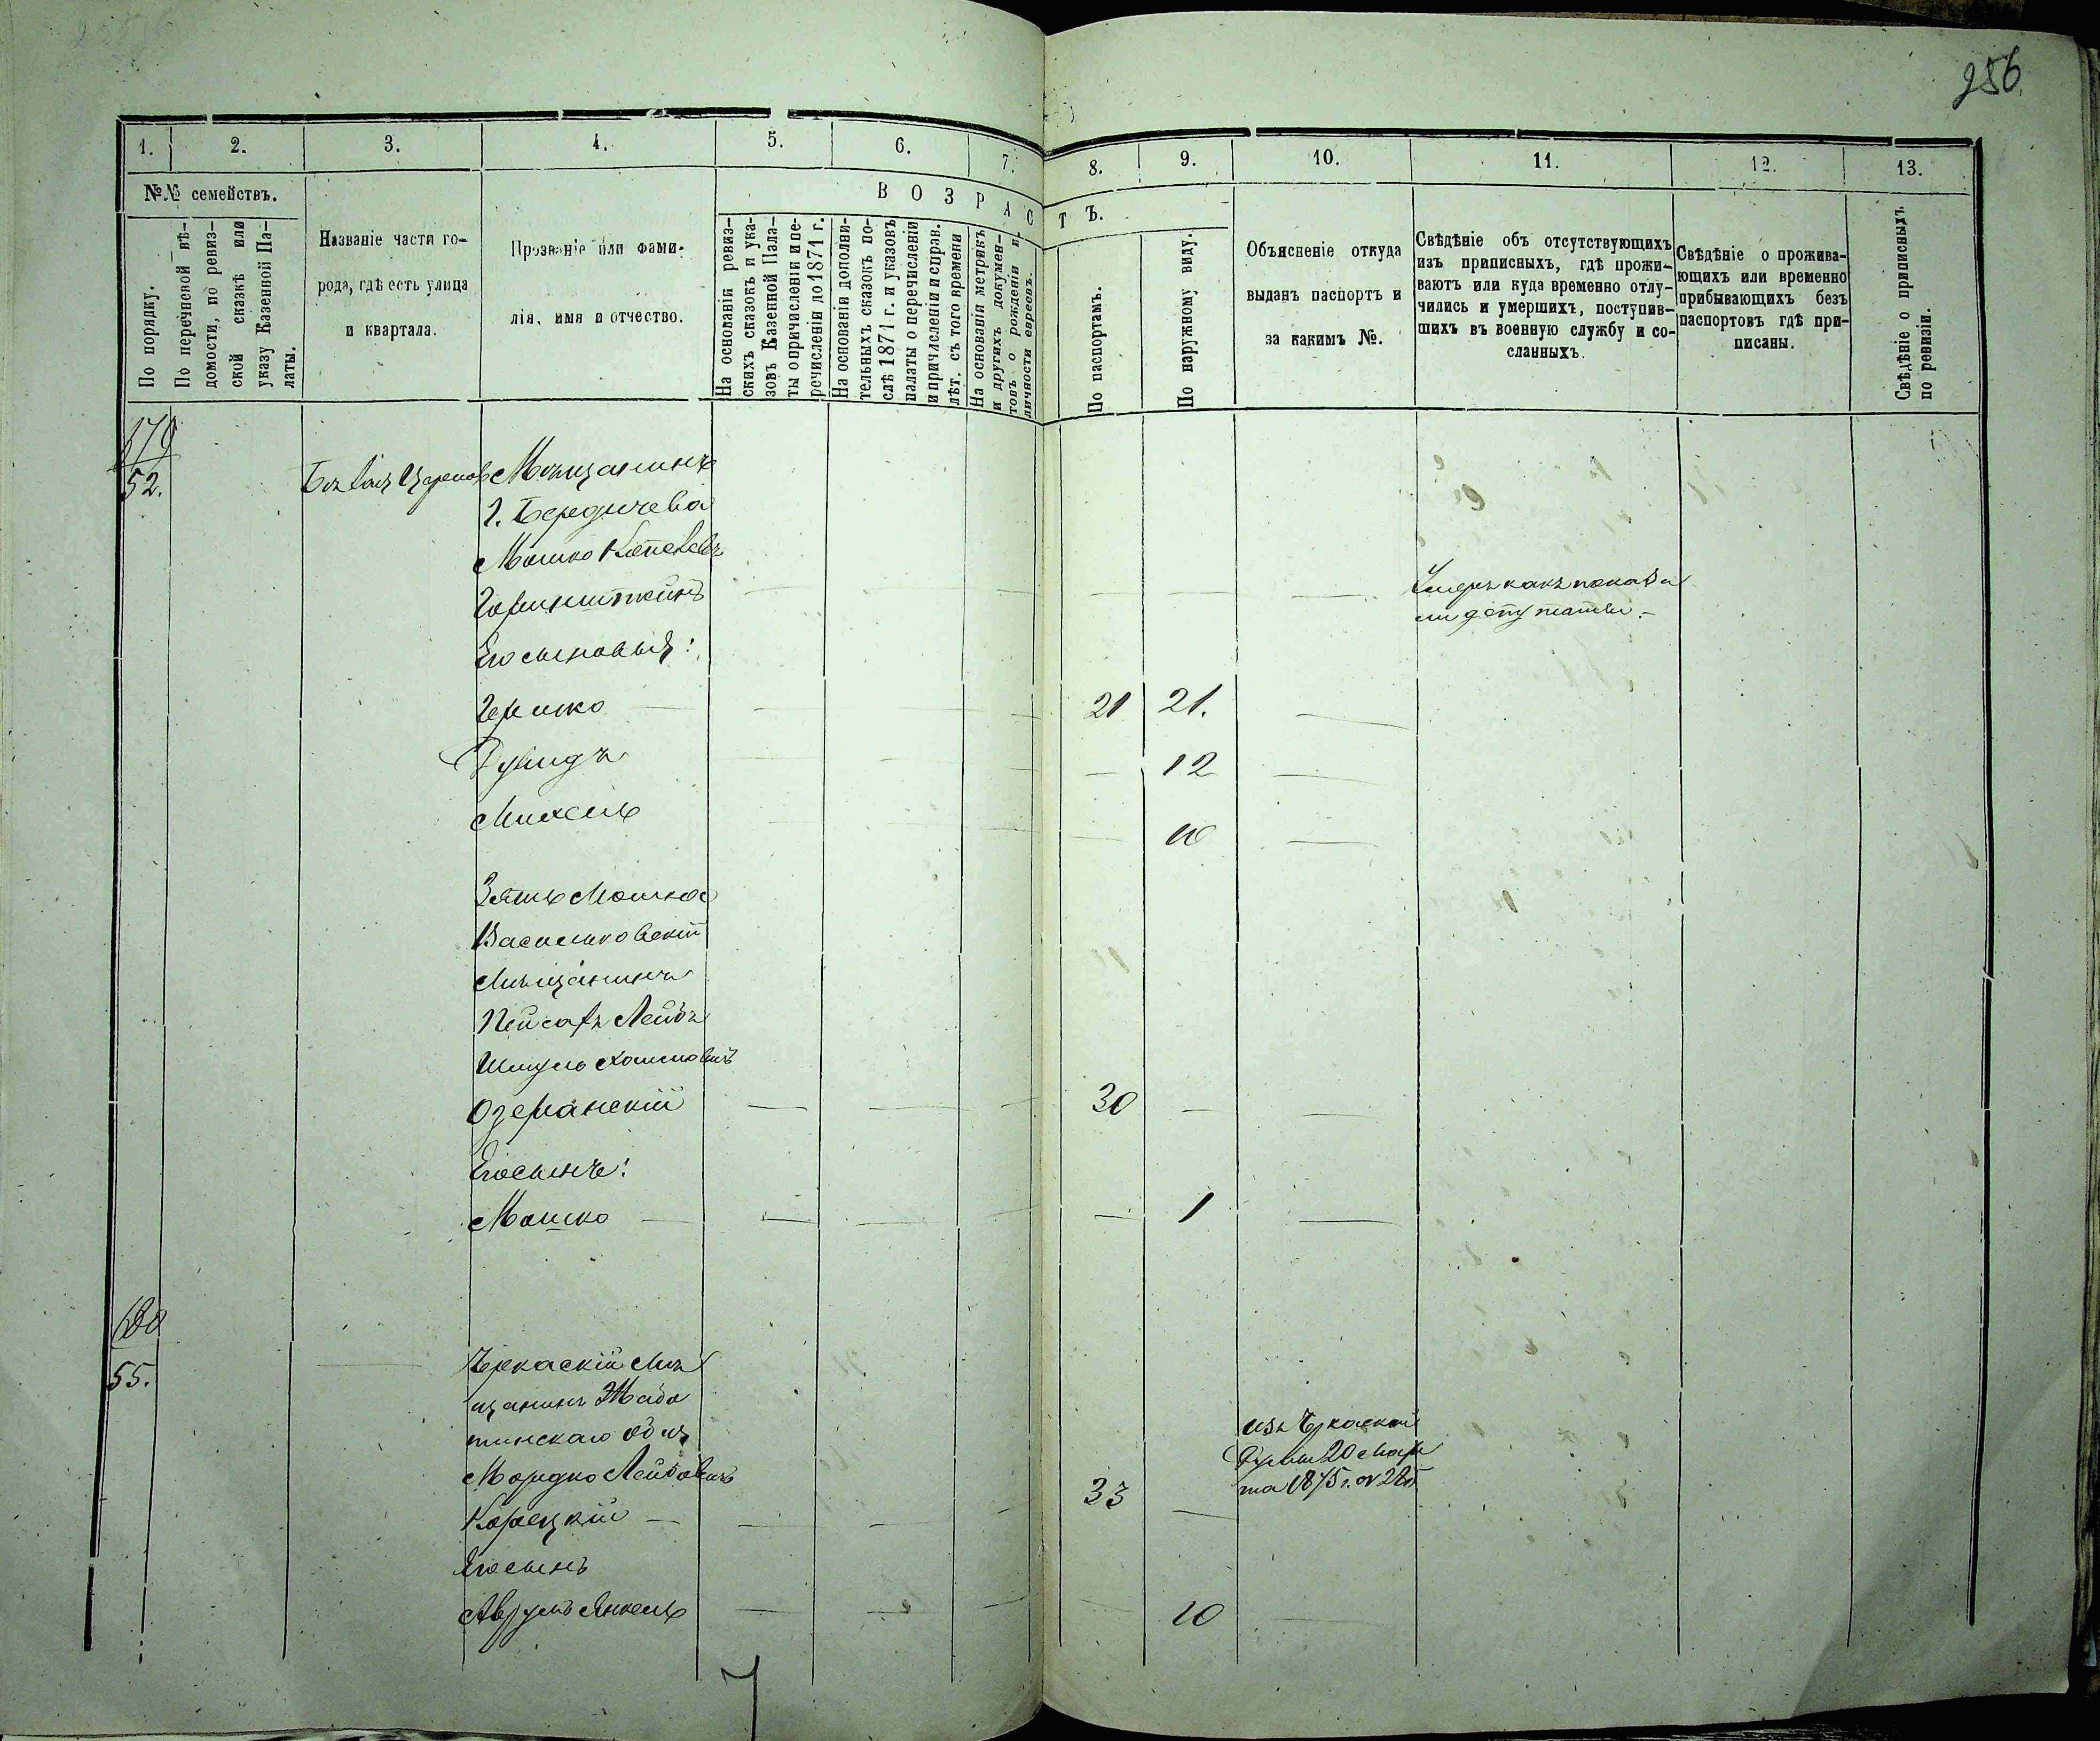 256.
1. 2. 3. 4. 5. 6. 7. 8. 9. 10. 11. 12. 13.
№№ семействъ.
По порядку.
По перечневой вѣ-
домости, по ревиз-
ской сказкѣ или
указу Казенной Па-
латы.
Названіе части го-
рода, гдѣ есть улица
и квартала.
Прозваніе или фами-
лія, имя и отчество.
ВОЗРАСТЪ.
На основаніи ревиз-
скихъ сказокъ и ука-
зовъ Казенной Пала-
ты о причисленіи и пе-
речисленіи до 1871 г.
На основаніи дополни-
тельныхъ сказокъ по-
слѣ 1871 г. и указовъ
палаты о перечисленіи
и причисленіи и справ.
лѣт. съ того времени
На основаніи метрикъ
и другихъ докумен-
товъ о рожденіи и
личности евреевъ.
По паспортамъ.
По наружному виду.
Объясненіе откуда
выданъ паспортъ и
за какимъ №.
Свѣдѣніе объ отсутствующихъ
изъ приписныхъ, гдѣ прожи-
ваютъ или куда временно отлу-
чились и умершихъ, поступив-
шихъ въ военную службу и со-
сланныхъ.
Свѣдѣніе о прожива-
ющихъ или временно
прибывающихъ безъ
паспортовъ гдѣ при-
писаны.
Свѣдѣніе о приписныхъ
по ревизіи.
179
52.
Мѣщанинъ
г. Бердичева
Мошко
Его сыновья:
Гершко 21 21.
Дувидъ 12
Михель 10
Зять Мошко
Васильковскій
Мѣщанинъ
Пейсахъ Лейбъ
Шмуль Хаимовичъ
Озерянскій 30
Его сынъ:
Мошко 1
Умеръ какъ показа
ли депутаты.
180
55.
Черкаскій Мѣ
щанинъ Жабо
тинскаго общ
Мордко Лейбовичъ
Корецкій 33
Его сынъ
Аврумъ Янкель 10
изъ Черкаской
Думы 20 Мар
та 1875 г. №